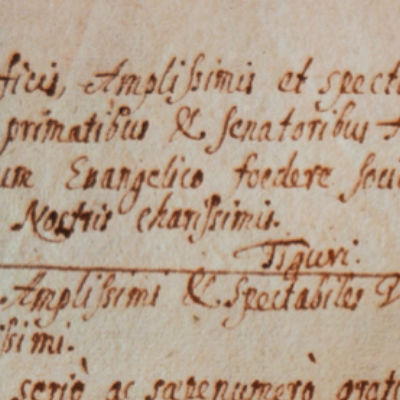 ficis, Amplißimis et specta
primatibus & senatoribus
um Euangelico foedere soci
Nostris charißimis.
Tiguri.
Amplißimi & Spectabiles V
ißimi.
seriò ac saepenumerò gratu